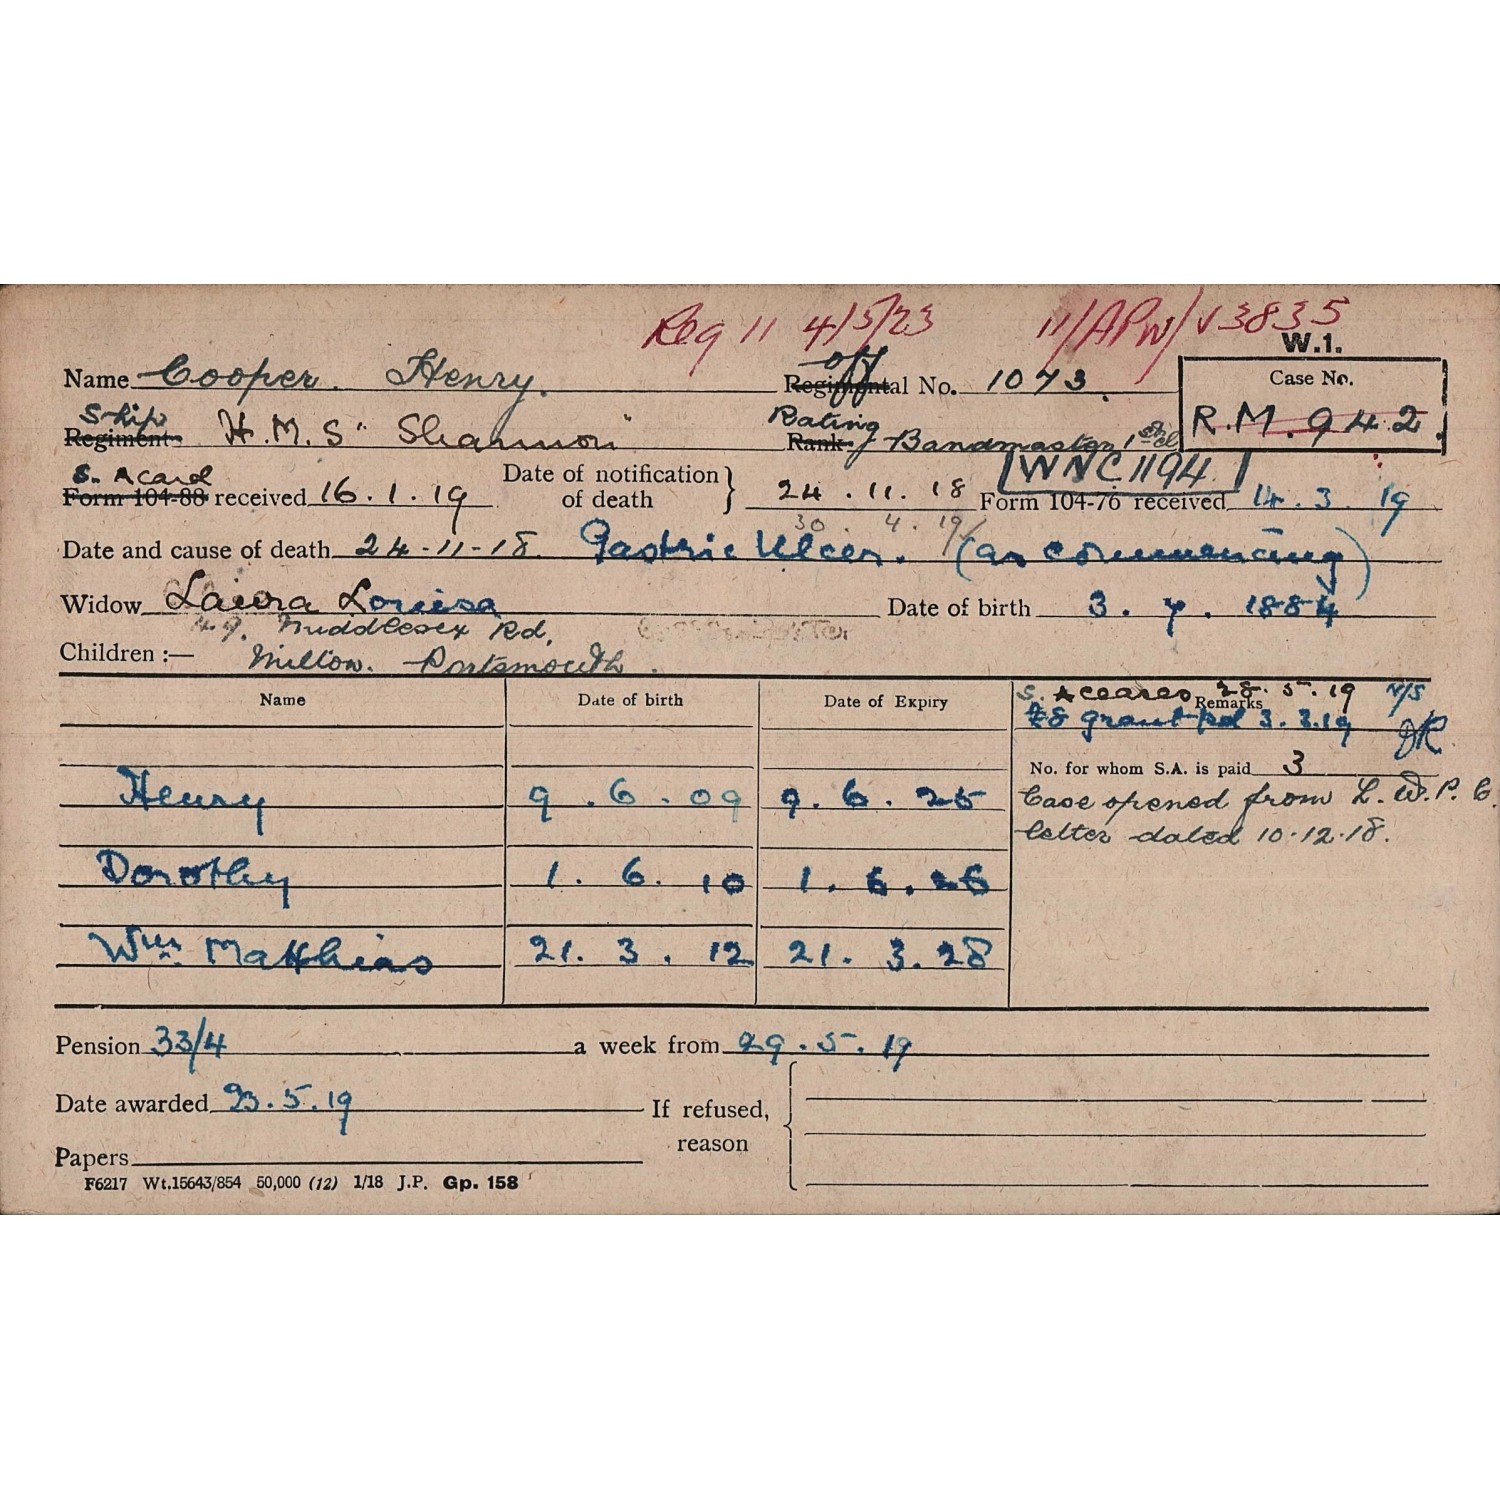 Reg 11 4/5/23 11/APW/V3835
W.1.
off
Name Cooper. Henry. Regimental No. 1073.
Case No.
R.M. 942.
Ship Rating
Regiment H.M.S "Shannon" Rank Bandmaster 1st cl
WNC 1194
S. A card
Form 104-88 received 16.1.19 Date of notification of death } 24.11.18 Form 104-76 received 14.3.19
30.4.19
Date and cause of death 24-11-18 Gastric Ulcer. (as commencing)
Widow Laura Louisa Date of birth 3.7.1884
49. Middlesex Rd,
Children :— Milton. Portsmouth.
Name Date of birth Date of Expiry Remarks
S. A ceases 28.5.19
£8 grant pd 3.3.19
No. for whom S.A. is paid 3
Henry 9.6.09 9.6.25
Case opened from L.W.P.C.
letter dated 10.12.18.
Dorothy 1.6.10 1.6.26
Wm. Matthias 21.3.12 21.3.28
Pension 33/4 a week from 29.5.19
Date awarded 23.5.19 If refused, reason
Papers
F6217 Wt.15643/854 50,000 (12) 1/18 J.P. Gp. 158